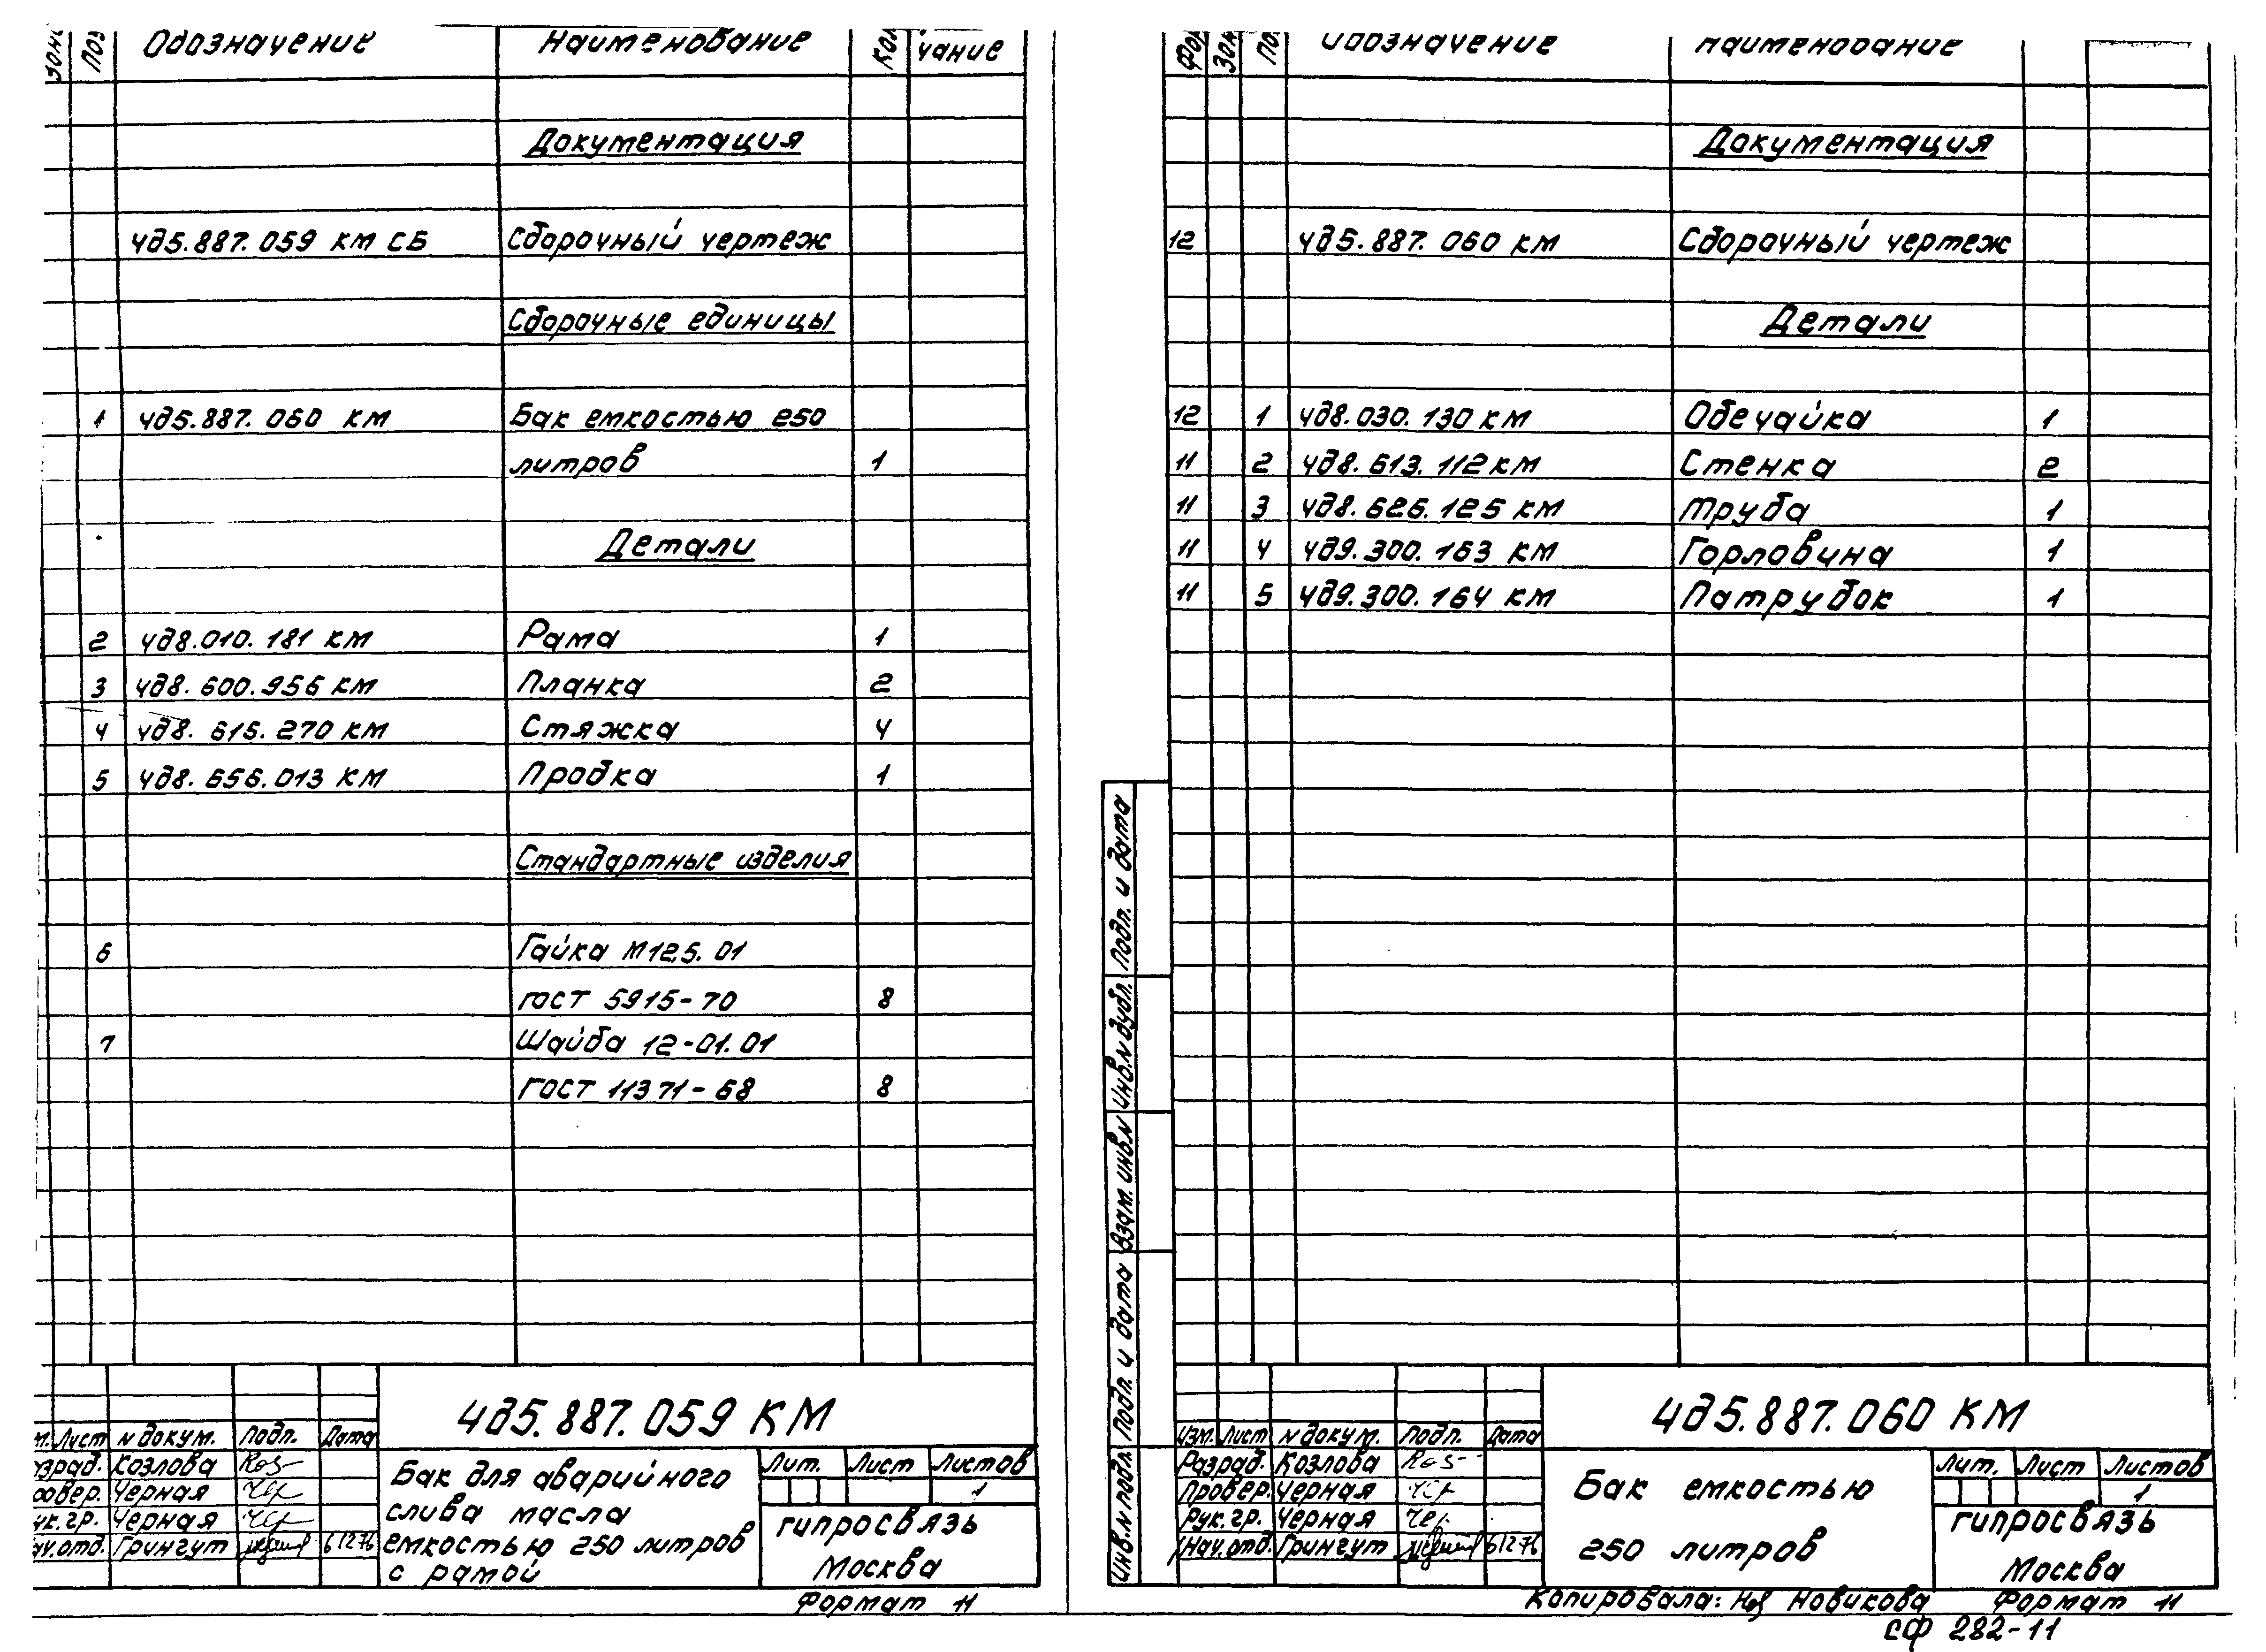 Поз Обозначение Наименование Кол чание
Документация
ЧД5.887.059 КМ СБ Сборочный чертеж
Сборочные единицы
1 ЧД5.887.060 КМ Бак емкостью 250
литров 1
Детали
2 ЧД8.010.181 КМ Рама 1
3 ЧД8.600.956 КМ Планка 2
4 ЧД8.615.270 КМ Стяжка 4
5 ЧД8.656.013 КМ Пробка 1
Стандартные изделия
6 Гайка М12.5.01
ГОСТ 5915-70 8
7 Шайба 12-01.01
ГОСТ 11371-68 8
ЧД5.887.059 КМ
Лист N докум. Подп. Дата
Козлова
Черная
Черная
Грингут 6 12 76
Бак для аварийного
слива масла
емкостью 250 литров
с рамой
Лит. Лист Листов
1
Гипросвязь
Москва
Формат 11
Обозначение Наименование
Документация
12 ЧД5.887.060 КМ Сборочный чертеж
Детали
12 1 ЧД8.030.130 КМ Обечайка 1
11 2 ЧД8.613.112 КМ Стенка 2
11 3 ЧД8.626.125 КМ Труба 1
11 4 ЧД9.300.163 КМ Горловина 1
11 5 ЧД9.300.164 КМ Патрубок 1
Подп. и дата
Инв.N дубл.
Взам. инв.N
Подп. и дата
Инв.N подл.
ЧД5.887.060 КМ
Изм. Лист N докум. Подп. Дата
Разраб. Козлова
Провер. Черная
Рук.гр. Черная
Нач.отд. Грингут 6 12 76
Бак емкостью
250 литров
Лит. Лист Листов
1
Гипросвязь
Москва
Копировала: Новикова Формат 11
СФ 282-11